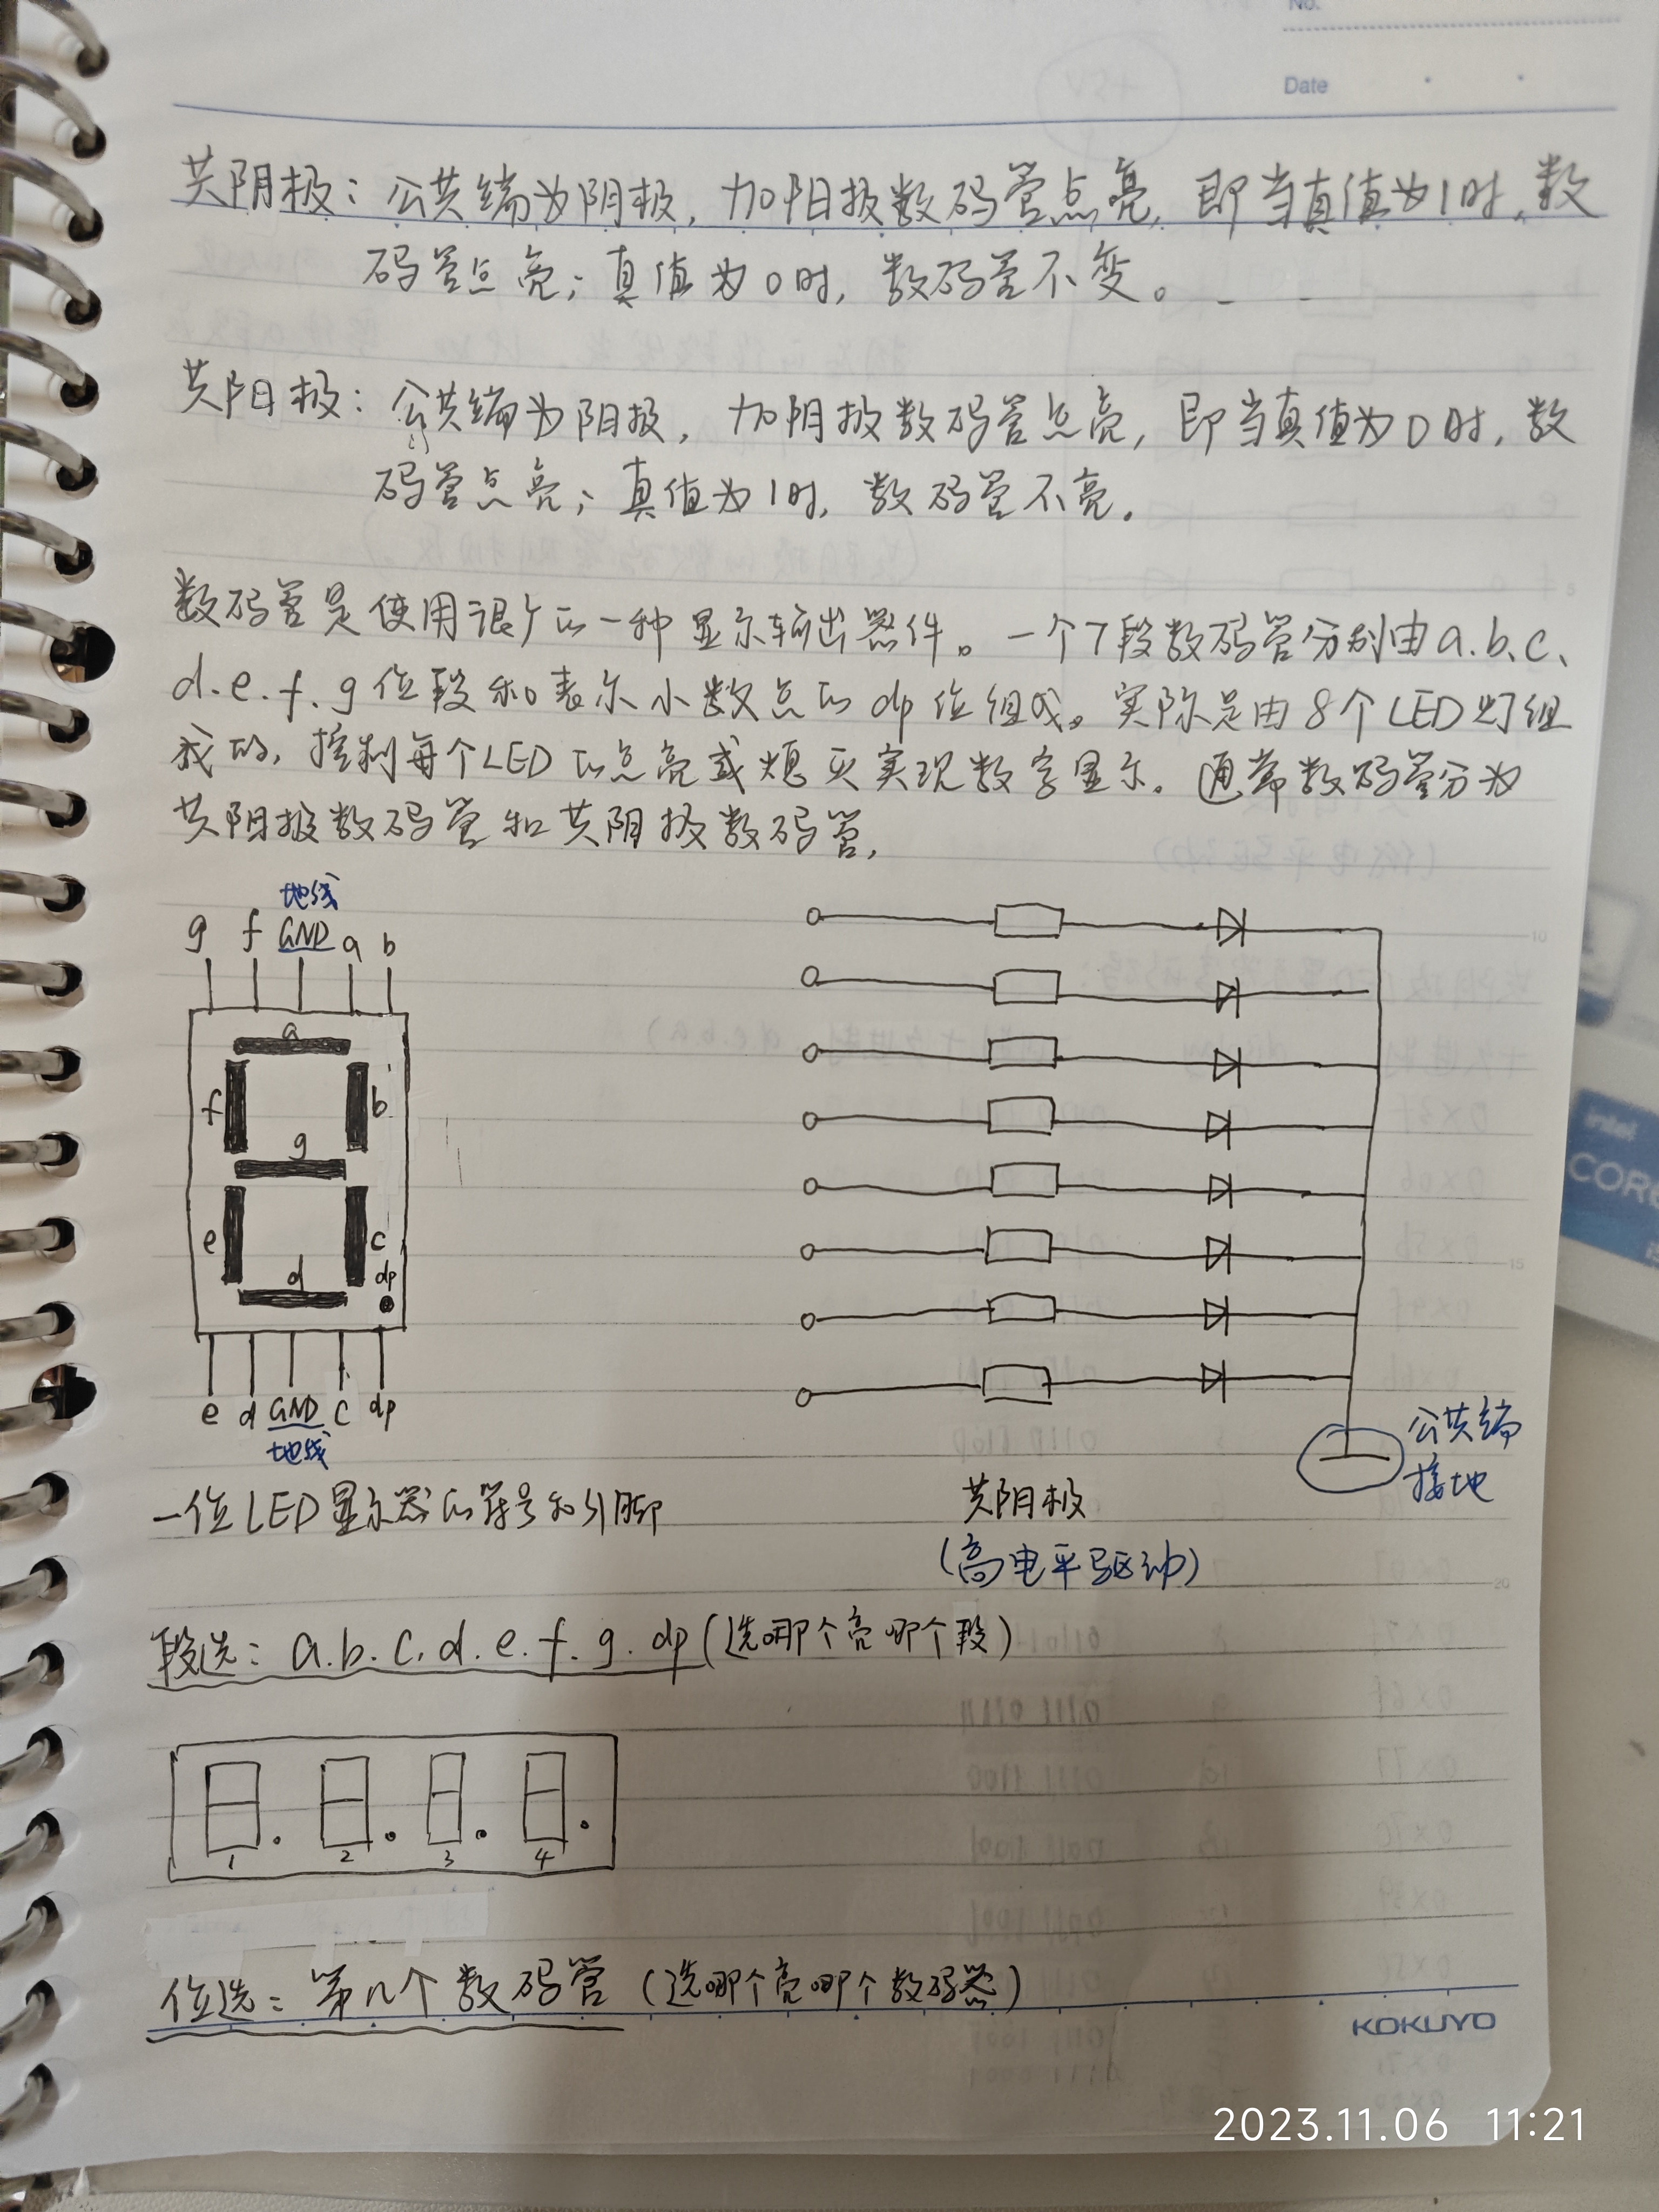 No.
Date
共阴极：公共端为阴极，加阳极数码管点亮，即当真值为1时，数
码管点亮；真值为0时，数码管不变。
共阳极：公共端为阳极，加阴极数码管点亮，即当真值为0时，数
码管点亮；真值为1时，数码管不亮。
数码管是使用很广的一种显示输出器件。一个7段数码管分别由a.b、c、
d.e.f.g位段和表示小数点的dp位组成。实际是由8个LED灯组
成的，控制每个LED的点亮或熄灭实现数字显示。通常数码管分为
共阳极数码管和共阴极数码管，
地线
g f GND a b
a
f b
g
e c
d dp
e d GND c dp
地线
公共端
接地
一位LED显示器的符号和引脚
共阴极
(高电平驱动)
段选：a.b.c.d.e.f.g.dp(选哪个亮哪个段)
1 2 3 4
位选：第几个数码管(选哪个亮哪个数码器)
KOKUYO
intel
CORE
2023.11.06 11:21